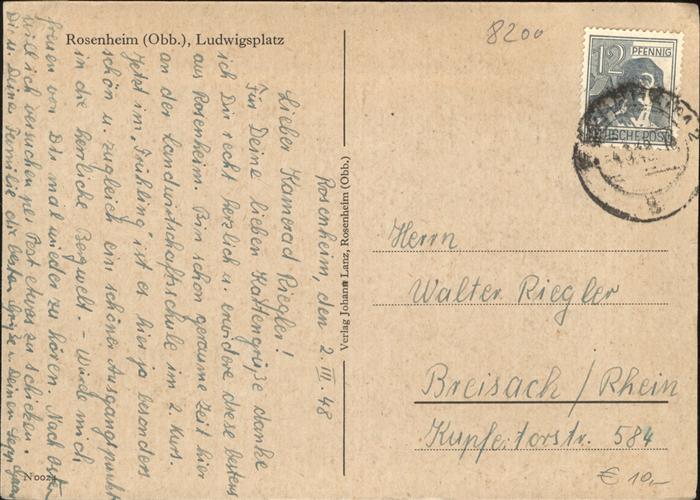 Rosenheim (Obb.), Ludwigsplatz
8200
12 PFENNIG
DEUTSCHE POST
Rosenheim, den 2. III. 48
Lieber Kamerad Riegler!
Für Deine lieben Kartengrüße danke
ich Dir recht herzlich u. erwidere diese bestens
aus Rosenheim. Bin schon geraume Zeit hier
an der Landwirtschaftsschule im 2. Kurs.
Jetzt im „Frühling" ist es hier ja besonders
schön u. zugleich ein schöner Ausgangspunkt
in die herrliche Bergwelt. - Würde mich
freuen von Dir mal wieder zu hören. Nach
will ich versuchen per Post etwas zu schicken.
Dir u. Deine Familie die besten Grüße v. Deinem Sepp
Verlag Johann Lanz, Rosenheim (Obb.)
Herrn
Walter Riegler
Breisach / Rhein
Kupfertorstr. 584
€ 10,-
N002